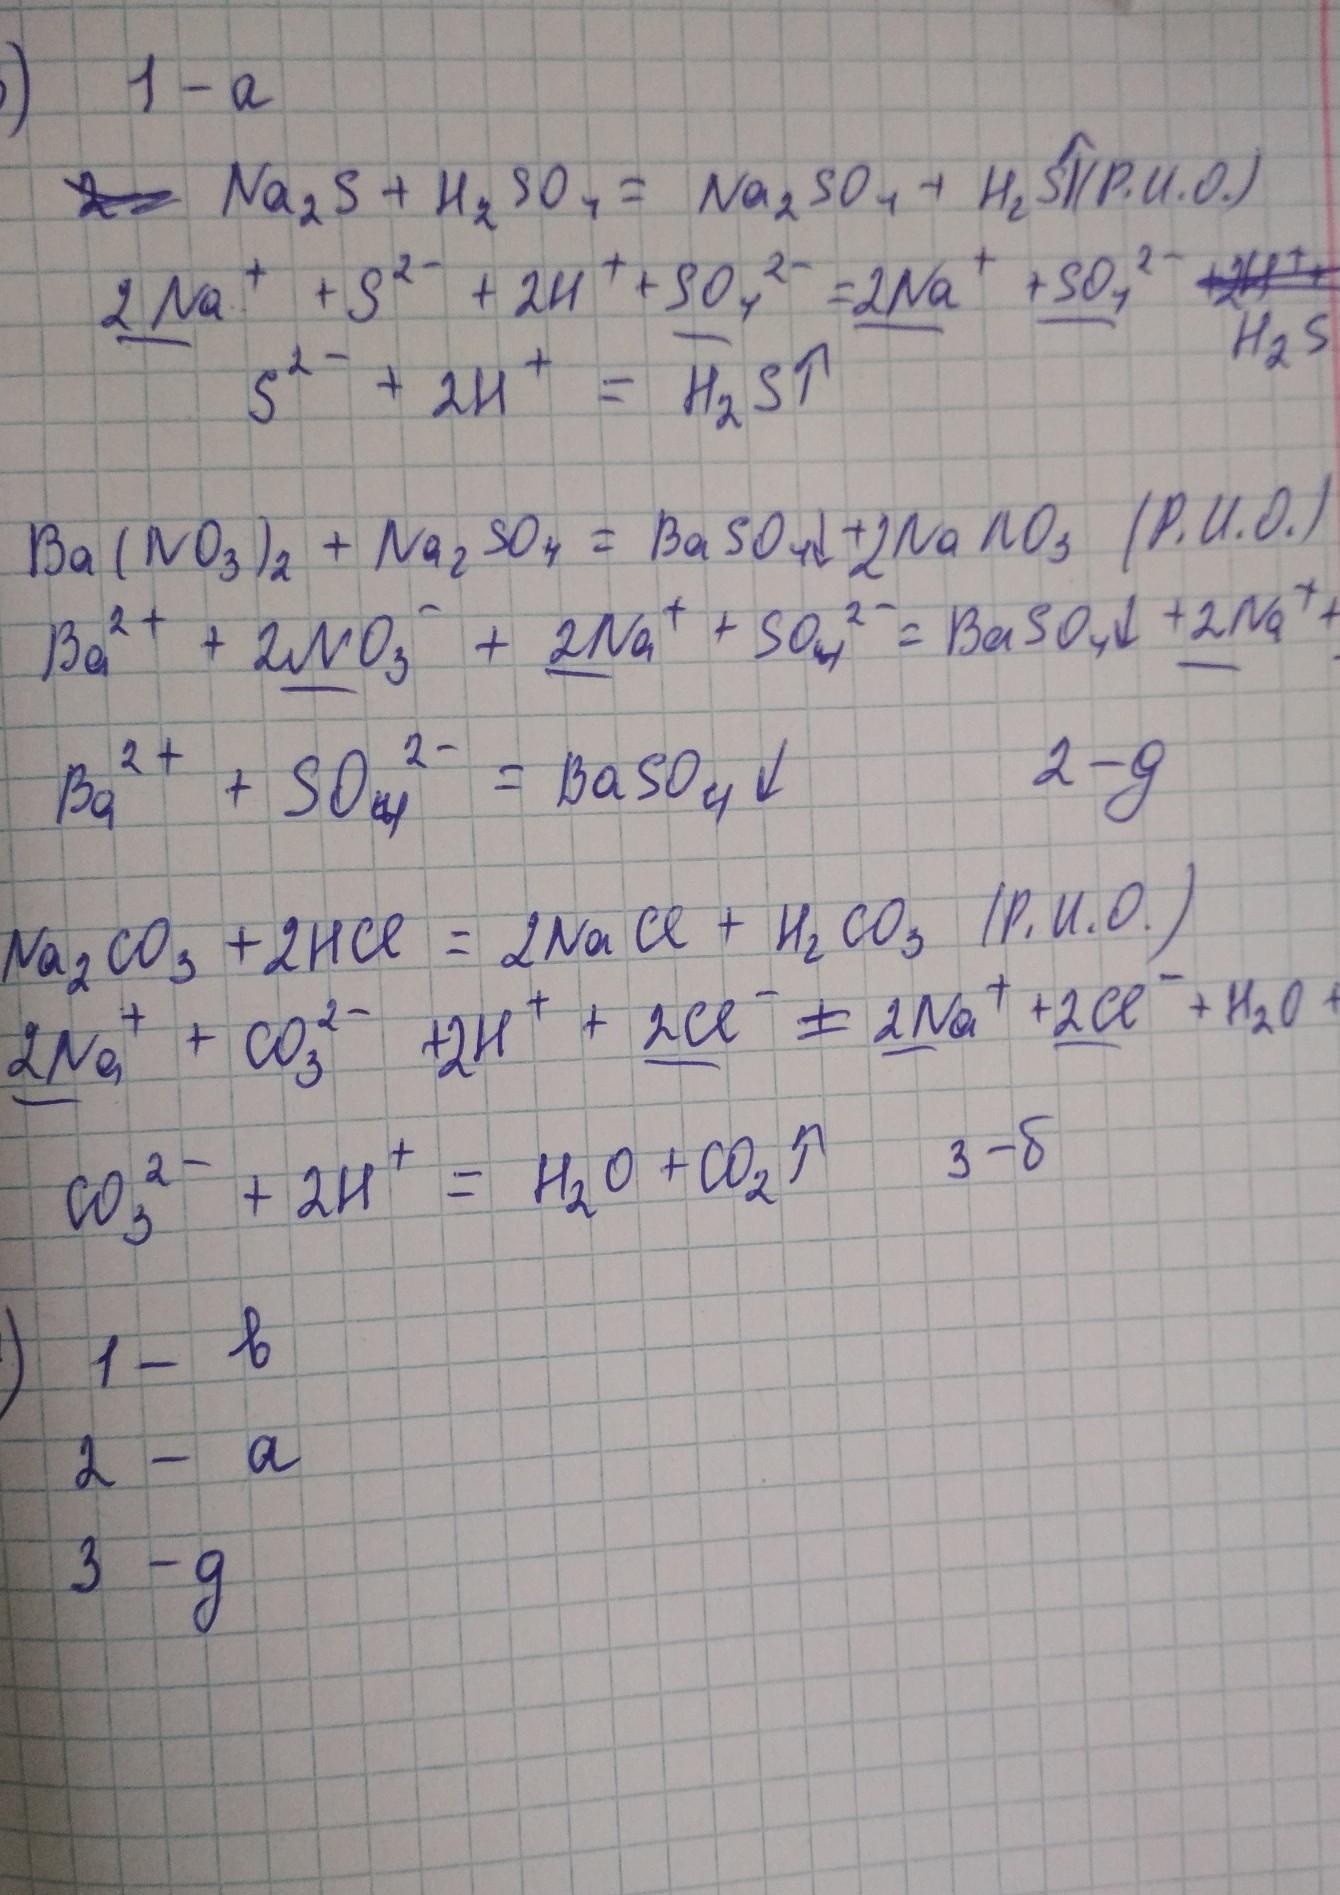 ) 1 - а
Na₂S + H₂SO₄ = Na₂SO₄ + H₂S↑ (Р.И.О.)
2Na⁺ + S²⁻ + 2H⁺ + SO₄²⁻ = 2Na⁺ + SO₄²⁻ + 2H⁺ +
H₂S
S²⁻ + 2H⁺ = H₂S↑
Ba(NO₃)₂ + Na₂SO₄ = BaSO₄↓ + 2NaNO₃ (Р.И.О.)
Ba²⁺ + 2NO₃⁻ + 2Na⁺ + SO₄²⁻ = BaSO₄↓ + 2Na⁺ +
Ba²⁺ + SO₄²⁻ = BaSO₄↓ 2 - д
Na₂CO₃ + 2HCl = 2NaCl + H₂CO₃ (Р.И.О.)
2Na⁺ + CO₃²⁻ + 2H⁺ + 2Cl⁻ = 2Na⁺ + 2Cl⁻ + H₂O +
CO₃²⁻ + 2H⁺ = H₂O + CO₂↑ 3 - б
) 1 - в
2 - а
3 - д